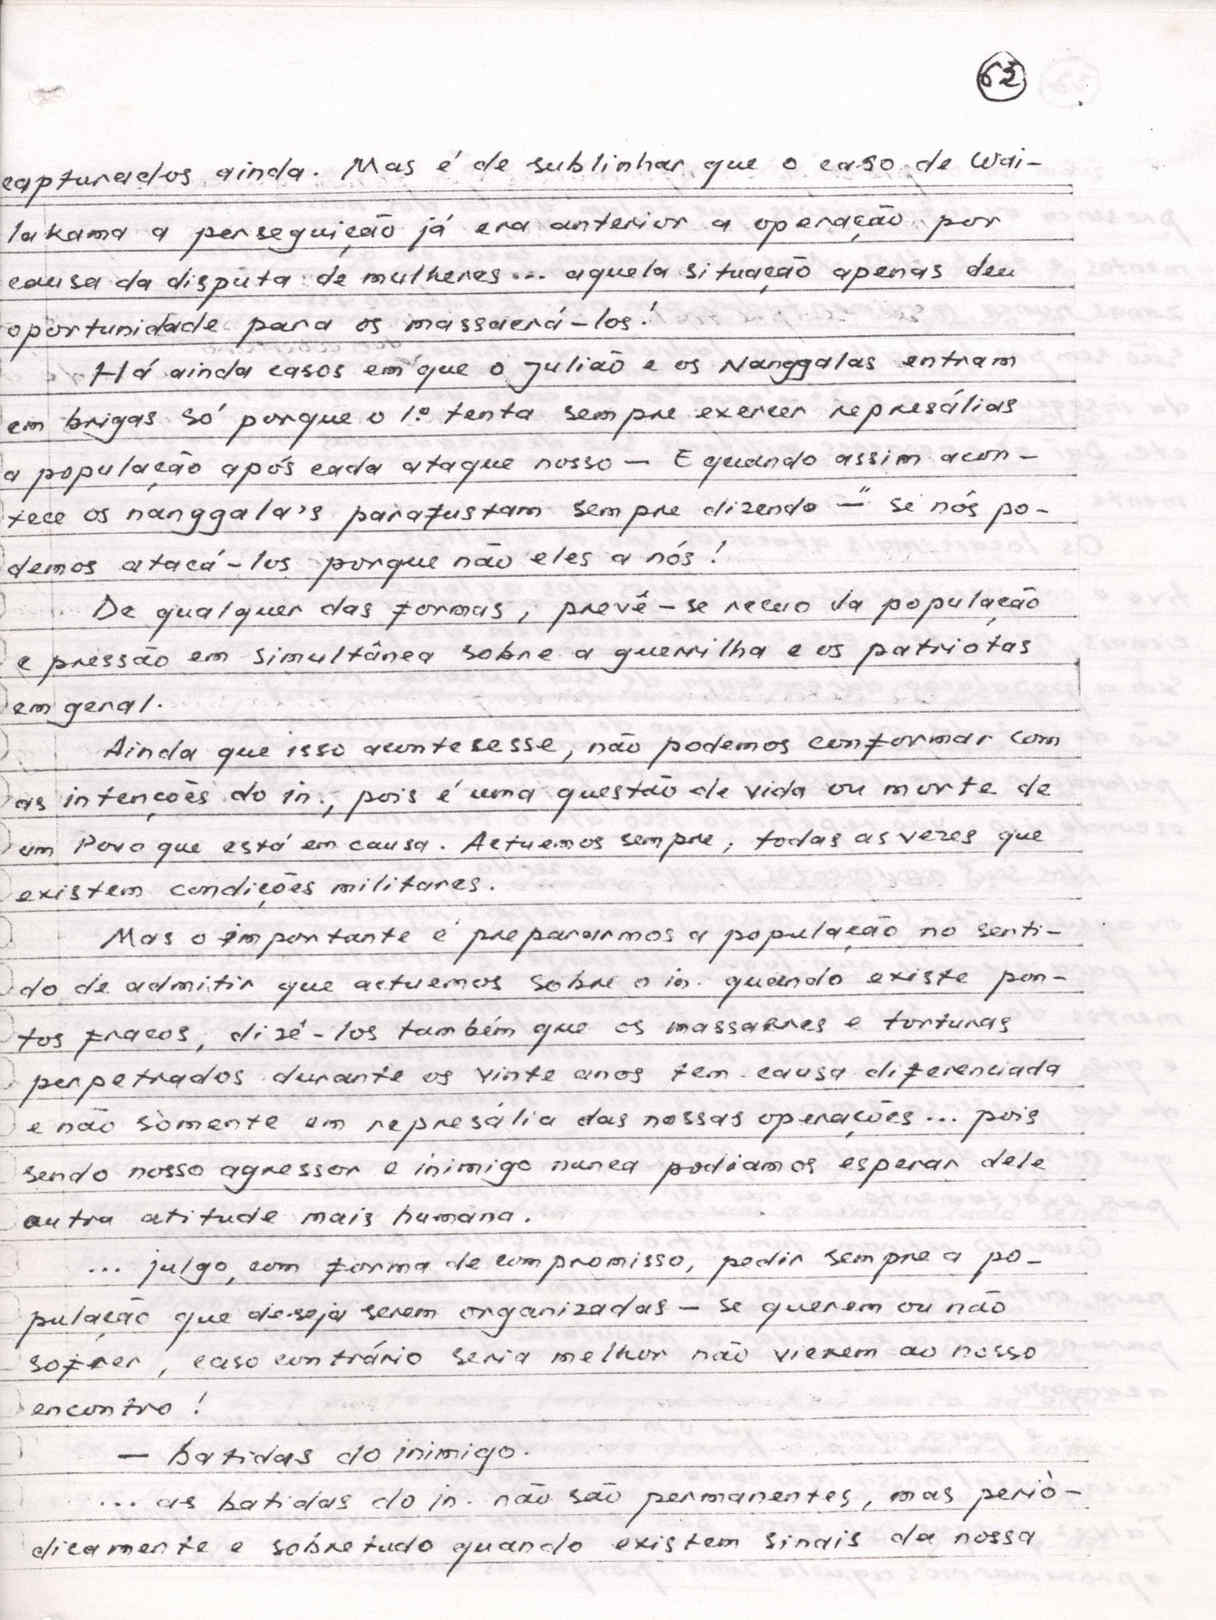 63
capturados ainda. Mas é de sublinhar que o caso de Wai-
lakama a perseguição já era anterior a operação por
causa da disputa de mulheres... aquela situação apenas deu
oportunidade para os massacrá-los!
Há ainda casos em que o Julião e os Nanggalas entram
em brigas só porque o 1.º tenta sempre exercer represálias
a população após cada ataque nosso — E quando assim acon-
tece os nanggala's parafustam sempre dizendo — " se nós po-
demos atacá-los porque não eles a nós!
De qualquer das formas, prevê-se recuo da população
e pressão em simultânea sobre a guerrilha e os patriotas
em geral.
Ainda que isso acontesesse, não podemos conformar com
as intenções do in., pois é uma questão de vida ou morte de
um Povo que está em causa. Actuemos sempre, todas as vezes que
existem condições militares.
Mas o importante é prepararmos a população no senti-
do de admitir que actuemos sobre o in. quando existe pon-
tos fracos, dizê-los também que os massacres e torturas
perpetrados durante os vinte anos tem causa diferenciada
e não sòmente em represália das nossas operações... pois
sendo nosso agressor e inimigo nunca podiamos esperar dele
outra atitude mais humana.
... julgo, com forma de compromisso, pedir sempre a po-
pulação que deseja serem organizadas — se querem ou não
sofrer, caso contrário seria melhor não virem ao nosso
encontro!
— batidas do inimigo.
... as batidas do in. não são permanentes, mas periò-
dicamente e sobretudo quando existem sinais da nossa